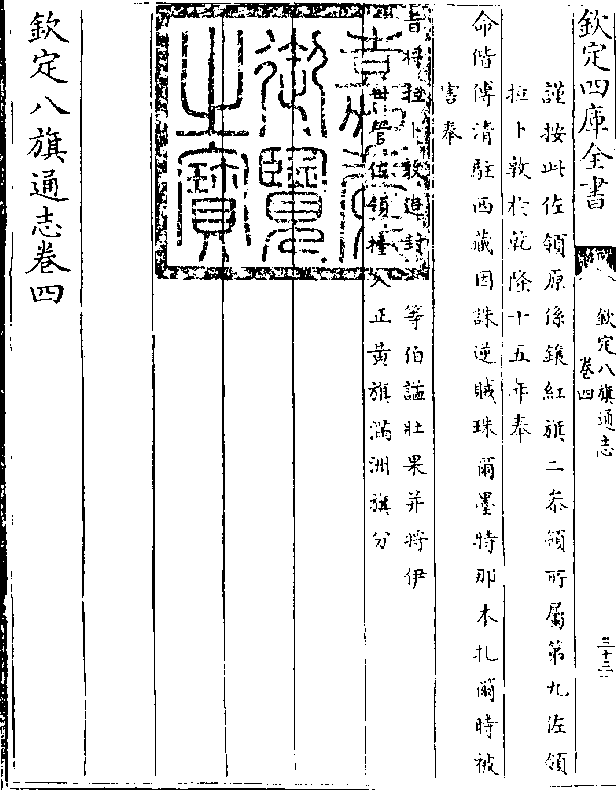 欽定四庫全書
欽定八旗通志
卷四
三十三
謹按此佐領原係鑲紅旗二叅領所屬第九佐領
拉卜敦於乾隆十五年奉
命偕傅清駐西藏因誅逆賊珠爾墨特那木扎爾時被
害奉
旨將拉卜敦追封等伯諡壯果并將伊
世管佐領擡入正黃旗滿洲旗分
乾隆御覽之寶
欽定八旗通志卷四